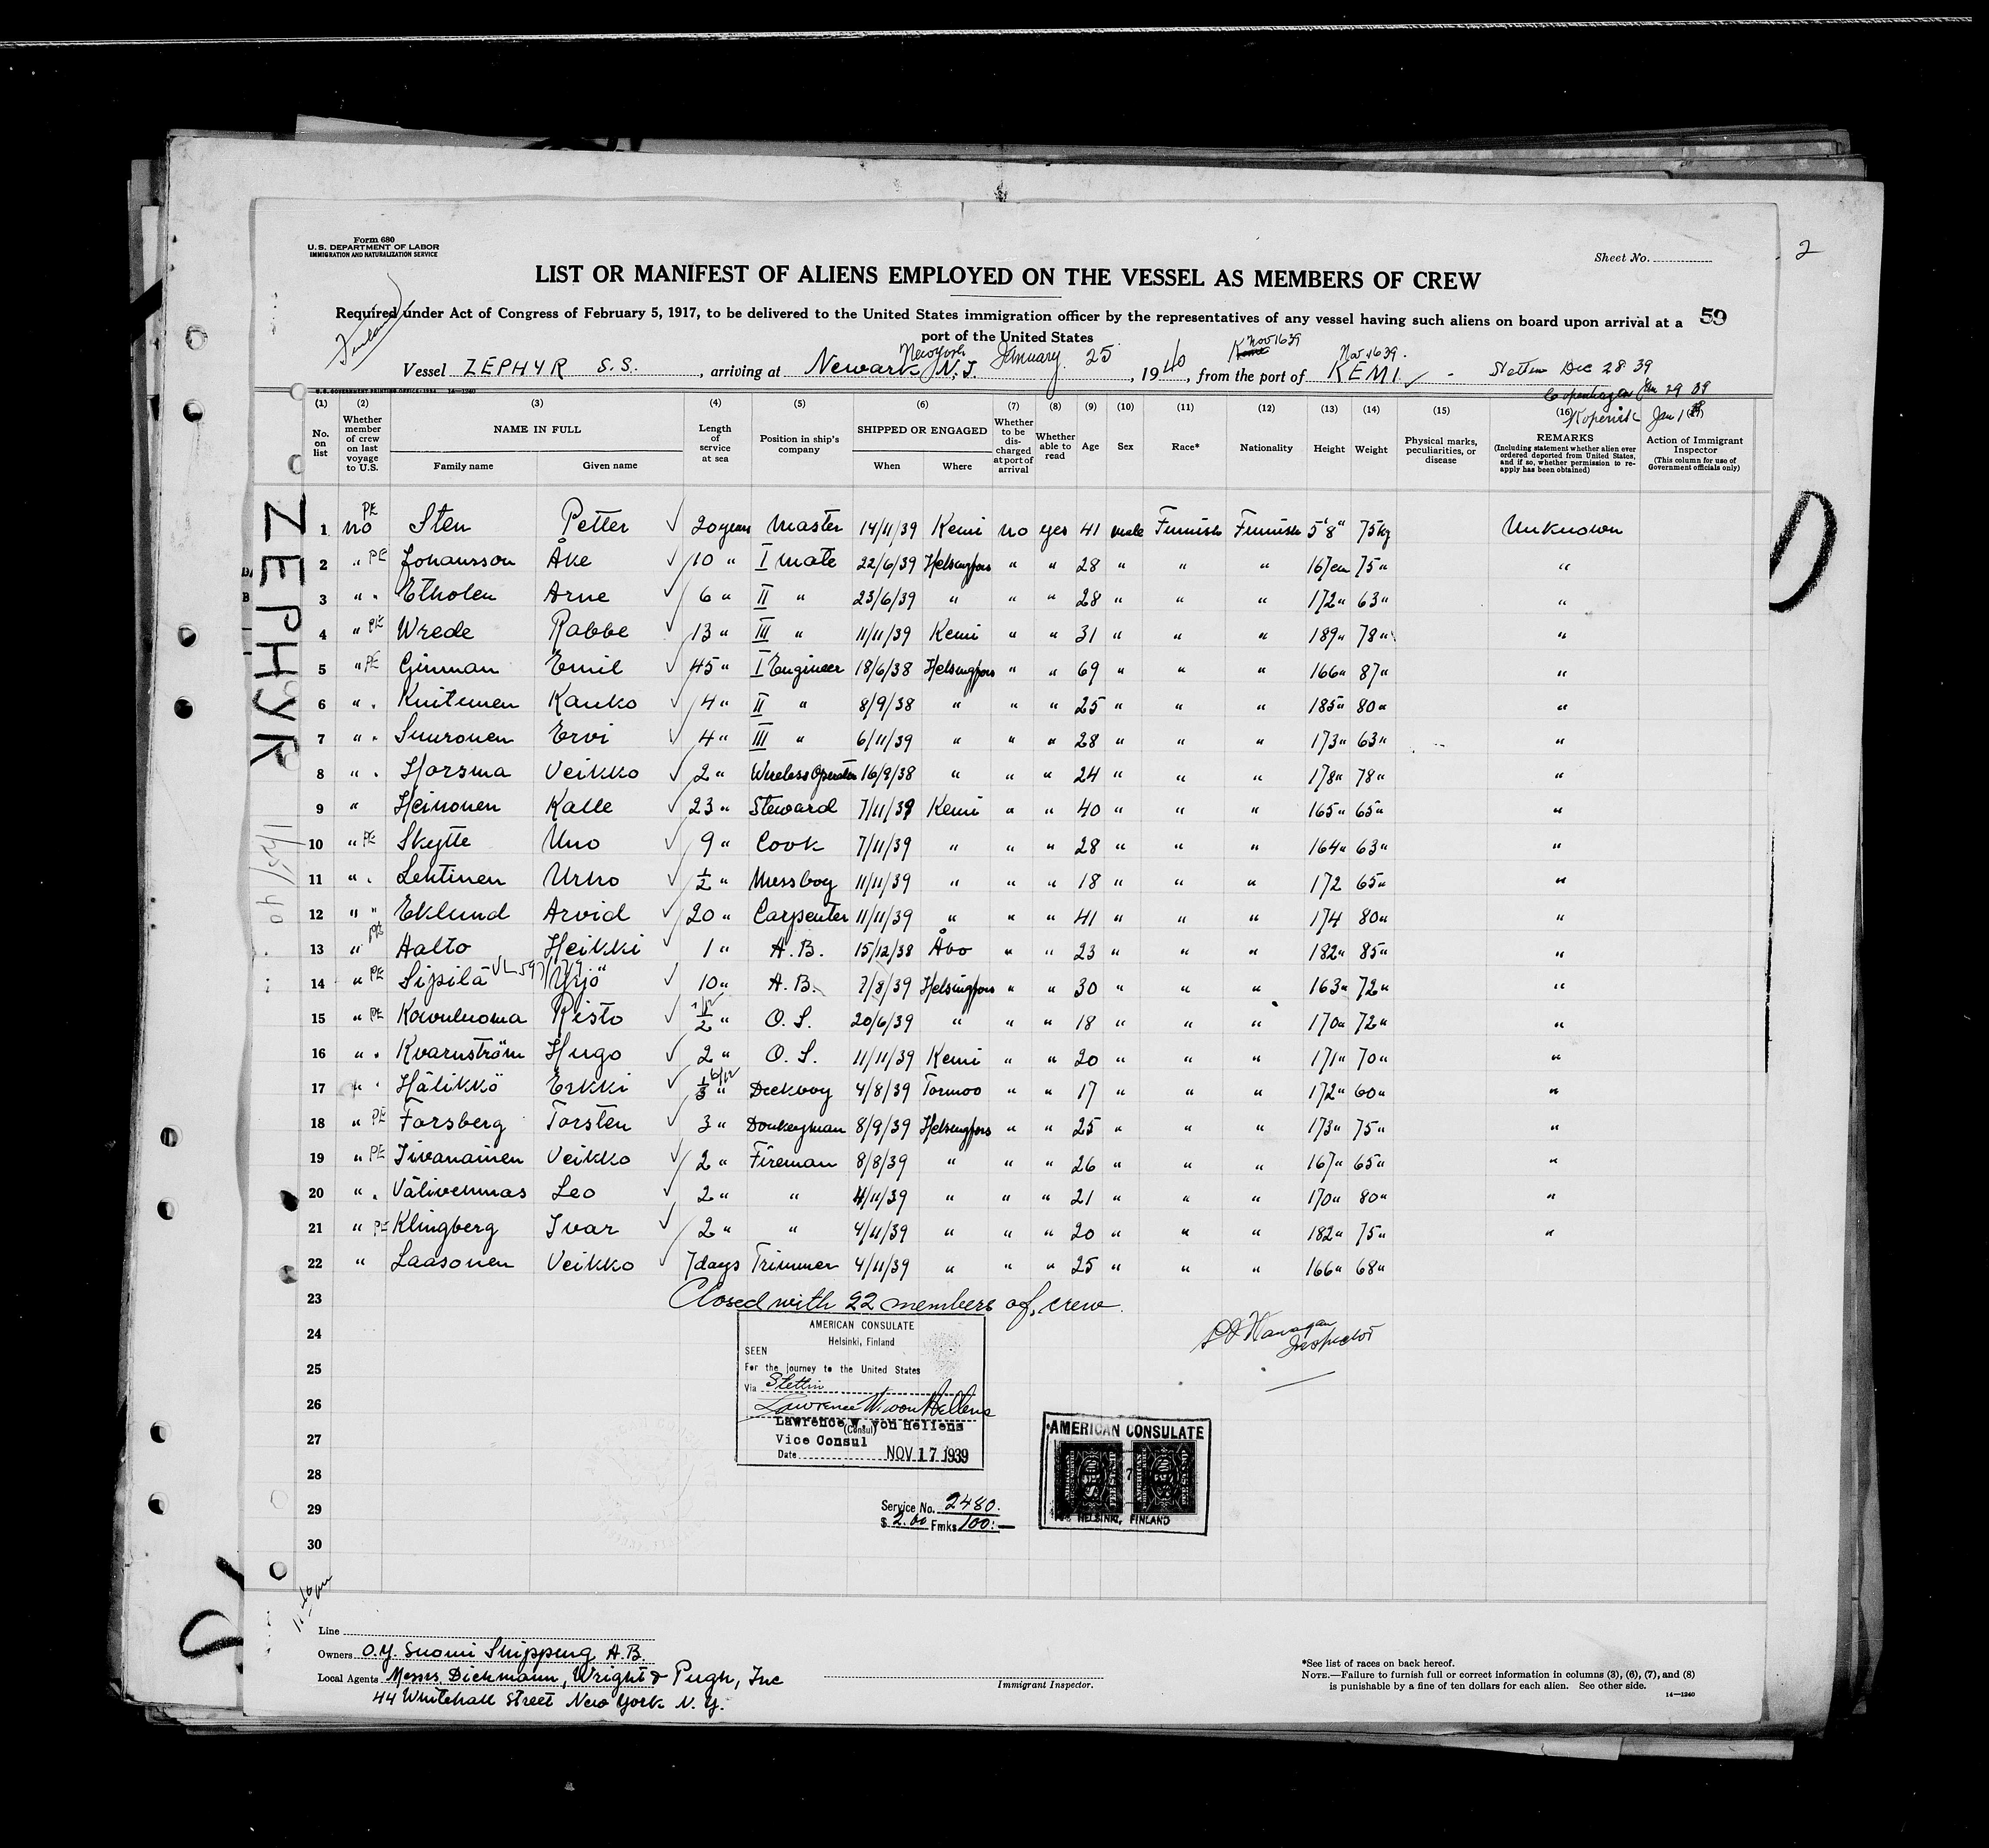 2
Form 680
U.S. DEPARTMENT OF LABOR
IMMIGRATION AND NATURALIZATION SERVICE
Sheet No.
LIST OR MANIFEST OF ALIENS EMPLOYED ON THE VESSEL AS MEMBERS OF CREW
Required under Act of Congress of February 5, 1917, to be delivered to the United States immigration officer by the representatives of any vessel having such aliens on board upon arrival at a
59
port of the United States
Finland
New York Nov 16 39 Nov. 16 39.
Vessel ZEPHYR S.S., arriving at Newark N.J. January 25, 1940, from the port of KEMI - Stettin Dec 28 39
Copenhagen
Jan 1
U.S. GOVERNMENT PRINTING OFFICE: 1934 14—1240
(1) (2) (3) (4) (5) (6) (7) (8) (9) (10) (11) (12) (13) (14) (15) (16) (17)
No. on list
Whether member of crew on last voyage to U.S.
NAME IN FULL
Family name
Given name
Length of service at sea
Position in ship's company
SHIPPED OR ENGAGED
When
Where
Whether to be discharged at port of arrival
Whether able to read
Age
Sex
Race*
Nationality
Height
Weight
Physical marks, peculiarities, or disease
REMARKS
(Including statement whether alien ever ordered deported from United States, and if so, whether permission to reapply has been obtained)
Action of Immigrant Inspector
(This column for use of Government officials only)
ZEPHYR
1/25/40
1 no PE Sten Petter ✓ 20 years Master 14/11/39 Kemi no yes 41 male Finnish Finnish 5'8" 75kg Unknown
2 " PE Johansson Åke ✓ 10 " I mate 22/6/39 Helsingfors " " 28 " " " 167cm 75 " "
3 " " Etholen Arne ✓ 6 " II " 23/6/39 " " " 28 " " " 172 " 63 " "
4 " PE Wrede Rabbe ✓ 13 " III " 11/11/39 Kemi " " 31 " " " 189 " 78 " "
5 " PE Ginman Emil ✓ 45 " I Engineer 18/6/38 Helsingfors " " 69 " " " 166 " 87 " "
6 " " Knitunen Kauko ✓ 4 " II " 8/9/38 " " " 25 " " " 185 " 80 " "
7 " " Suuronen Ervi ✓ 4 " III " 6/11/39 " " " 28 " " " 173 " 63 " "
8 " " Horsma Veikko ✓ 2 " Wireless Operator 16/9/38 " " " 24 " " " 178 " 78 " "
9 " Heinonen Kalle ✓ 23 " Steward 7/11/39 Kemi " " 40 " " " 165 " 65 " "
10 " PE Skytte Uno ✓ 9 " Cook 7/11/39 " " " 28 " " " 164 " 63 " "
11 " " Lehtinen Urho ✓ 1/2 " Messboy 11/11/39 " " " 18 " " " 172 65 " "
12 " " Eklund Arvid ✓ 20 " Carpenter 11/11/39 " " " 41 " " " 174 80 " "
13 " Aalto Heikki ✓ 1 " A.B. 15/12/38 Åbo " " 23 " " " 182 " 85 " "
14 " PE Sipilä Yrjö ✓ 10 " A.B. 7/8/39 Helsingfors " " 30 " " " 163 " 72 " "
15 " PE Risto ✓ 1/2 " O.S. 20/6/39 " " " 18 " " " 170 " 72 " "
16 " " Kvarnström Hugo ✓ 2 " O.S. 11/11/39 Kemi " " 20 " " " 171 " 70 " "
17 " " Hälikkö Erkki ✓ 6/12 " Deckboy 4/8/39 " " 17 " " " 172 " 60 " "
18 " PE Forsberg Torsten ✓ 3 " Donkeyman 8/9/39 Helsingfors " " 25 " " " 173 " 75 " "
19 " PE Iivanainen Veikko ✓ 2 " Fireman 8/8/39 " " " 26 " " " 167 " 65 " "
20 " " Leo ✓ 2 " " 4/11/39 " " " 21 " " " 170 " 80 " "
21 " PE Klingberg Ivar ✓ 2 " " 4/11/39 " " " 20 " " " 182 " 75 " "
22 " Laasonen Veikko ✓ 7 days Trimmer 4/11/39 " " " 25 " " " 166 " 68 "
23 Closed with 22 members of crew.
24
Inspector
25
26
27
28
29
30
AMERICAN CONSULATE
Helsinki, Finland
SEEN
For the journey to the United States
Via Stettin
Lawrence W. von Hellens
Lawrence W. von Hellens
(Consul)
Vice Consul
Date NOV 17 1939
AMERICAN CONSULATE
HELSINKI, FINLAND
Service No. 2480.
$ 2.00 Fmks 100:—
Line
Owners O.Y. Suomi Shipping A.B.
Local Agents Messrs. Dichmann, Wright & Pugh, Inc
44 Whitehall Street New York N.Y.
Immigrant Inspector.
*See list of races on back hereof.
NOTE.—Failure to furnish full or correct information in columns (3), (6), (7), and (8)
is punishable by a fine of ten dollars for each alien. See other side.
14—1240